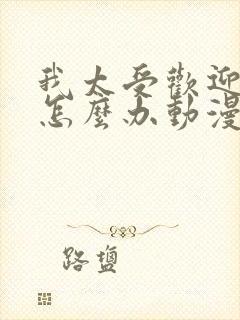 我太受歡迎
怎麼办動漫
路鹽